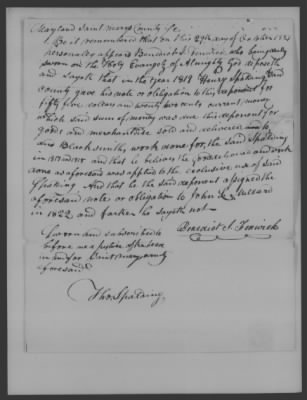 Maryland Saint Marys County Sc.
Be it remembered that on this 27th day of October 182
personally appears Benedict I. Fenwick who being duly
sworn on the Holy Evangely of Almighty God deposeth
and sayeth that in the year 1819 Henry Spalding of said
county gave his note or obligation to this deponent for
fifty five dollars and twenty two cents current money
which said sum of money was due this deponent for
goods and merchandise sold and delivered and to
Blacksmiths work done for the said Spalding
and that he believes the goods and work
done as aforesaid was applied to the exclusive use of said
Spalding. And that he the said deponent assigned the
aforesaid note or obligation to John
in 1822 and farther he sayeth not
Benedict I. Fenwick
Sworn and subscribed
before me a justice of the peace
in and for Saint Marys county
aforesaid
Thos Spalding